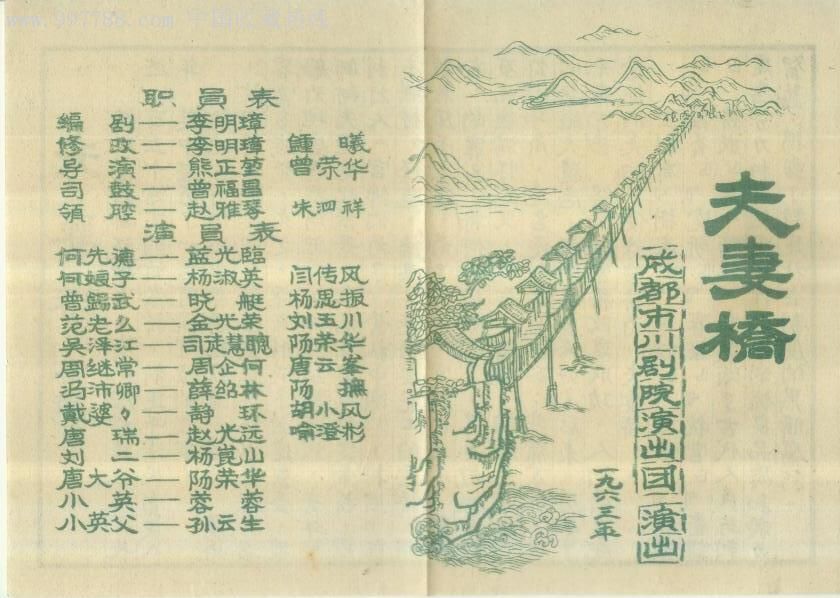 www.997788.com 中国收藏热线
职员表
编剧——李明璋
修改——李明璋 鍾曦
导演——熊正堃 曾荣华
司鼓——曾福昌
領腔——赵雅琴 朱泗祥
演员表
何先德——蓝光临
何娘子——杨淑英 闫传风
曾鍔武——晓艇 杨昆振
范老么——金光荣 刘玉川
吴泽江——司徒慧聪 阳荣华
周继常——周企何 唐云峯
冯沛卿——薛绍林 阳撫
戴婆々——静环 胡小风
唐瑞——赵光远 喻澄彬
刘二——杨崑山
唐大爷——阳荣华
小英——蓉蓉
小英父——孙云生
夫妻橋
成都市川剧院演出团演出
一九六三年